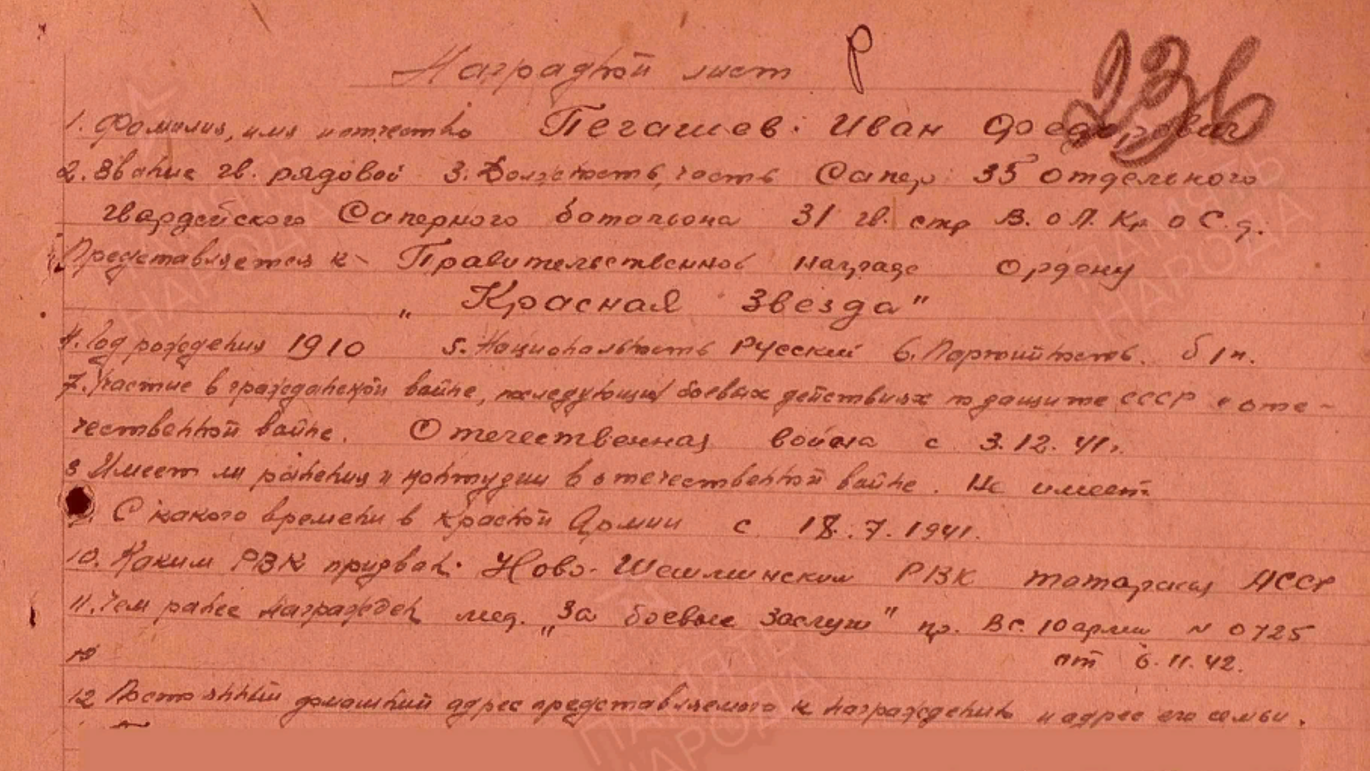 Наградной лист Р 236
1. Фамилия, имя и отчество Пегашев. Иван Федорович
2. Звание гв. рядовой 3. Должность, часть Сапер 35 отдельного
гвардейского Саперного батальона 31 гв. стр В.О.Л.Кр.О С.д.
Представляется к - Правительственной награде ордену
„Красная Звезда"
4. Год рождения 1910 5. Национальность Русский 6. Партийность. б/п.
7. Участие в гражданской войне, последующих боевых действиях по защите СССР и оте-
чественной войне. Отечественная война с 3.12.41г.
8 Имеет ли ранения и контузии в отечественной войне. Не имеет
9. С какого времени в Красной Армии с 18.7.1941.
10. Каким РВК призван. Ново-Шешминским РВК Татарская АССР
11. Чем ранее награжден мед. „За боевые заслуги" пр. ВС. 10 армии N 0725
от 6.11.42.
12 Постоянный домашний адрес представляемого к награждению и адрес его семьи.
ПАМЯТЬ НАРОДА
ПАМЯТЬ НАРОДА
ПАМЯТЬ НАРОДА